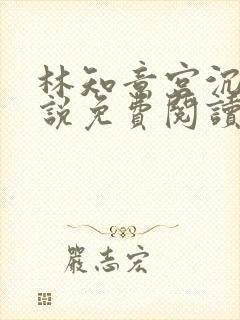 林知意宮沉
說免費閱讀
嚴志宏